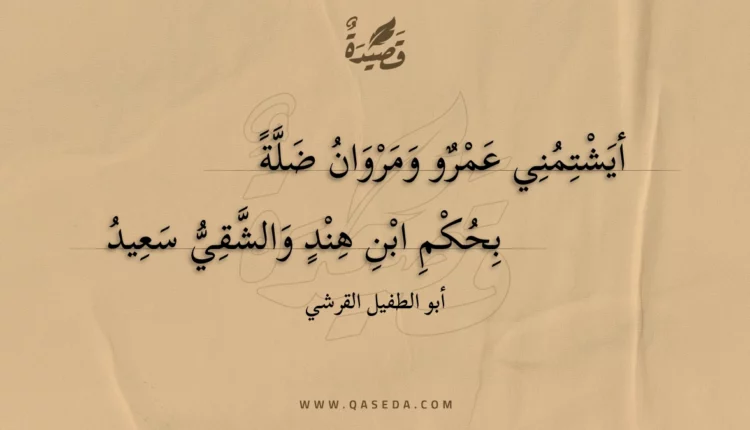 قَصِيْدَةٌ
أيَشْتِمُنِي عَمْرٌو وَمَرْوَانُ ضَلَّةً
بِحُكْمِ ابْنِ هِنْدٍ وَالشَّقِيُّ سَعِيدُ
أبو الطفيل القرشي
WWW.QASEDA.COM